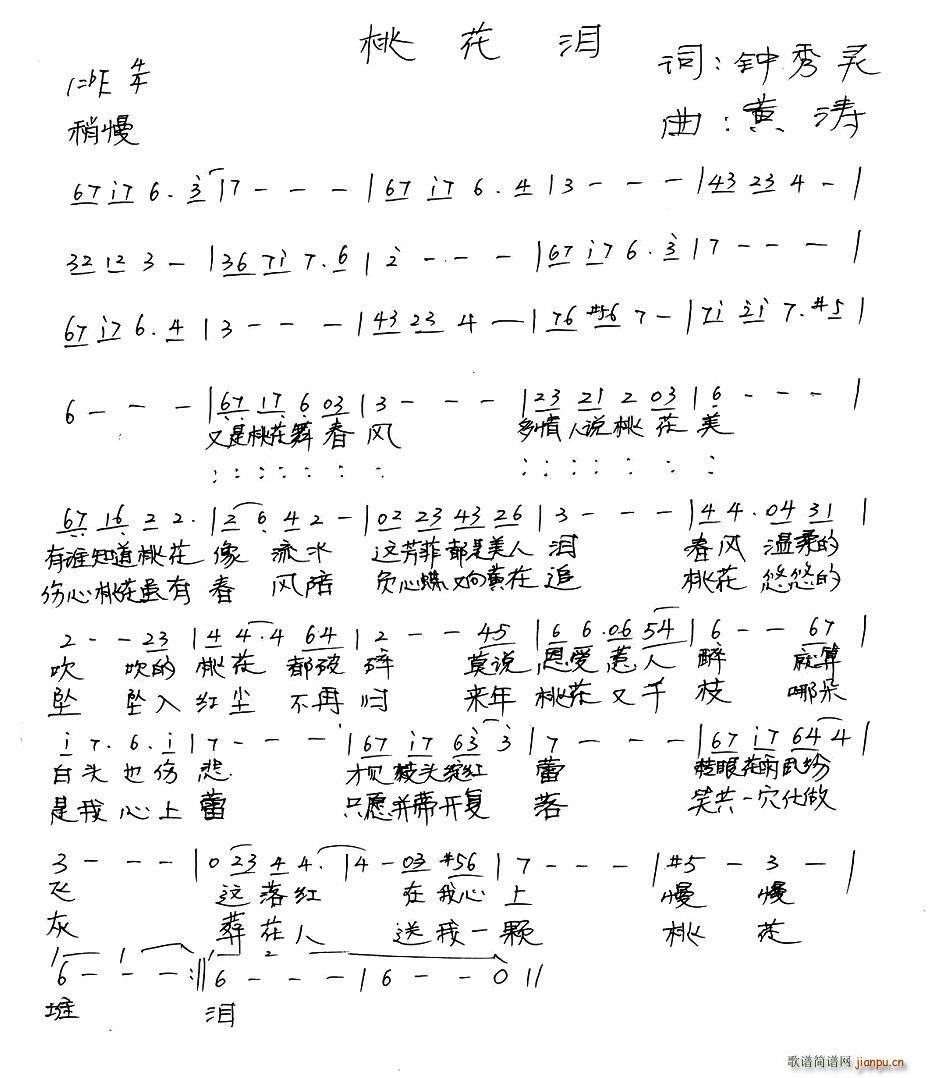 桃花泪
1=♭E 4/4
词:钟秀灵
稍慢
曲:黄涛
67 i7 6. 3 | 7 - - - | 67 i7 6. 4 | 3 - - - | 43 23 4 - |
32 12 3 - | 36 7i 7. 6 | 2 - - - | 67 i7 6. 3 | 7 - - - |
67 i7 6. 4 | 3 - - - | 43 23 4 - | 76 #56 7 - | 7i 2i 7. #5 |
6 - - - | 67 17 6 03 | 3 - - - | 23 21 2 03 | 6 - - - |
又是桃花舞春风 多情人说桃花美
: : : : : : : : : : : : : :
67 16 2 2. | 2 6 4 2 - | 02 23 43 26 | 3 - - - | 4 4. 04 31 |
有谁知道桃花像流水 这芳菲都是美人泪 春风温柔的
伤心桃花虽有春风陪 负心蝶又向黄花追 桃花悠悠的
2 - - 23 | 4 4. 4 64 | 2 - - 45 | 6 6. 06 54 | 6 - - 67 |
吹 吹的桃花都破碎 莫说恩爱惹人醉 就算
坠 坠入红尘不再归 来年桃花又千枝 哪朵
i 7. 6. i | 7 - - - | 67 i7 63 3 | 7 - - - | 67 i7 64 4 |
白头也伤悲 才见枝头绽红蕾 转眼花雨纷
是我心上蕾 只愿并蒂开复落 笑共一穴化做
3 - - - | 0 23 4 4. | 4 - 03 #56 | 7 - - - | #5 - 3 - |
飞 这落红在我心上 慢慢
灰 葬花人送我一颗 桃花
1 1 1 2
6 - - - :|| 6 - - - | 6 - - 0 ||
堆 泪
歌谱简谱网 jianpu.cn